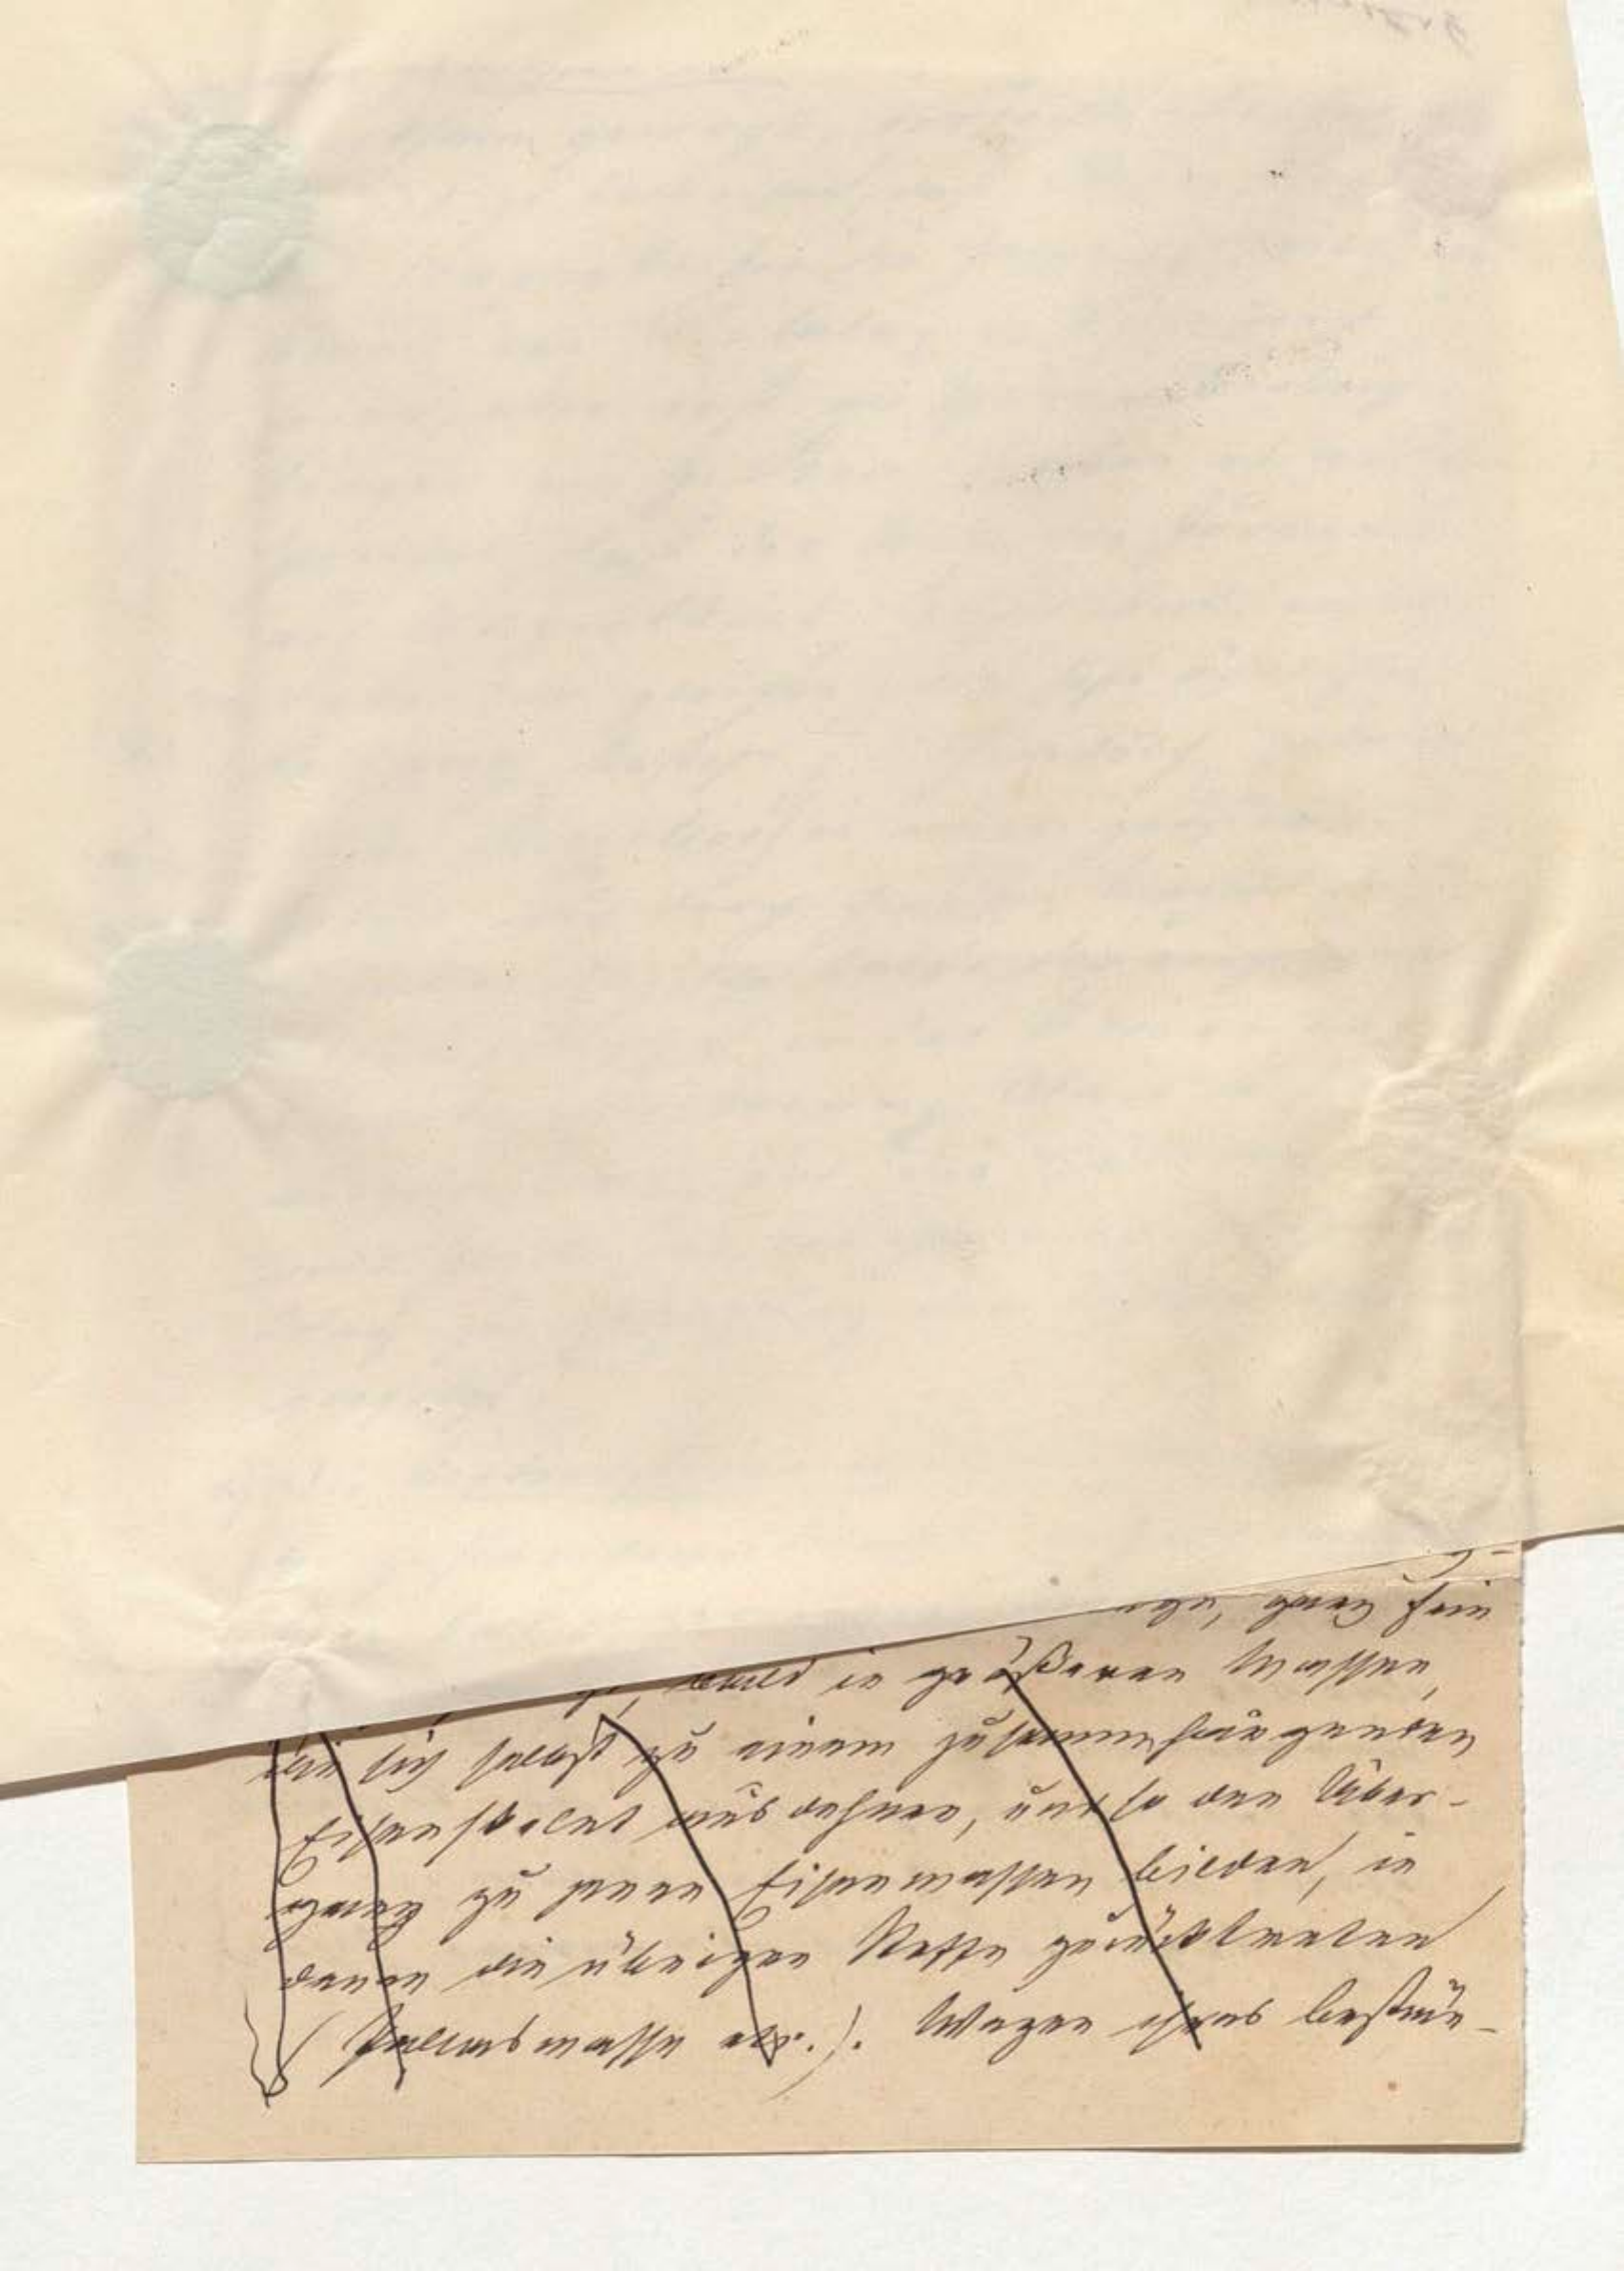 ganz fein
bald in größeren Massen,
die sich selbst zu einem zusammenhängenden
Eisenskelet ausdehnen, und so den Über-
gang zu jenen Eisenmassen bilden, in
denen die übrigen Stoffe zurücktreten
(Pallasmasse etc.). Wegen ihres bestän-